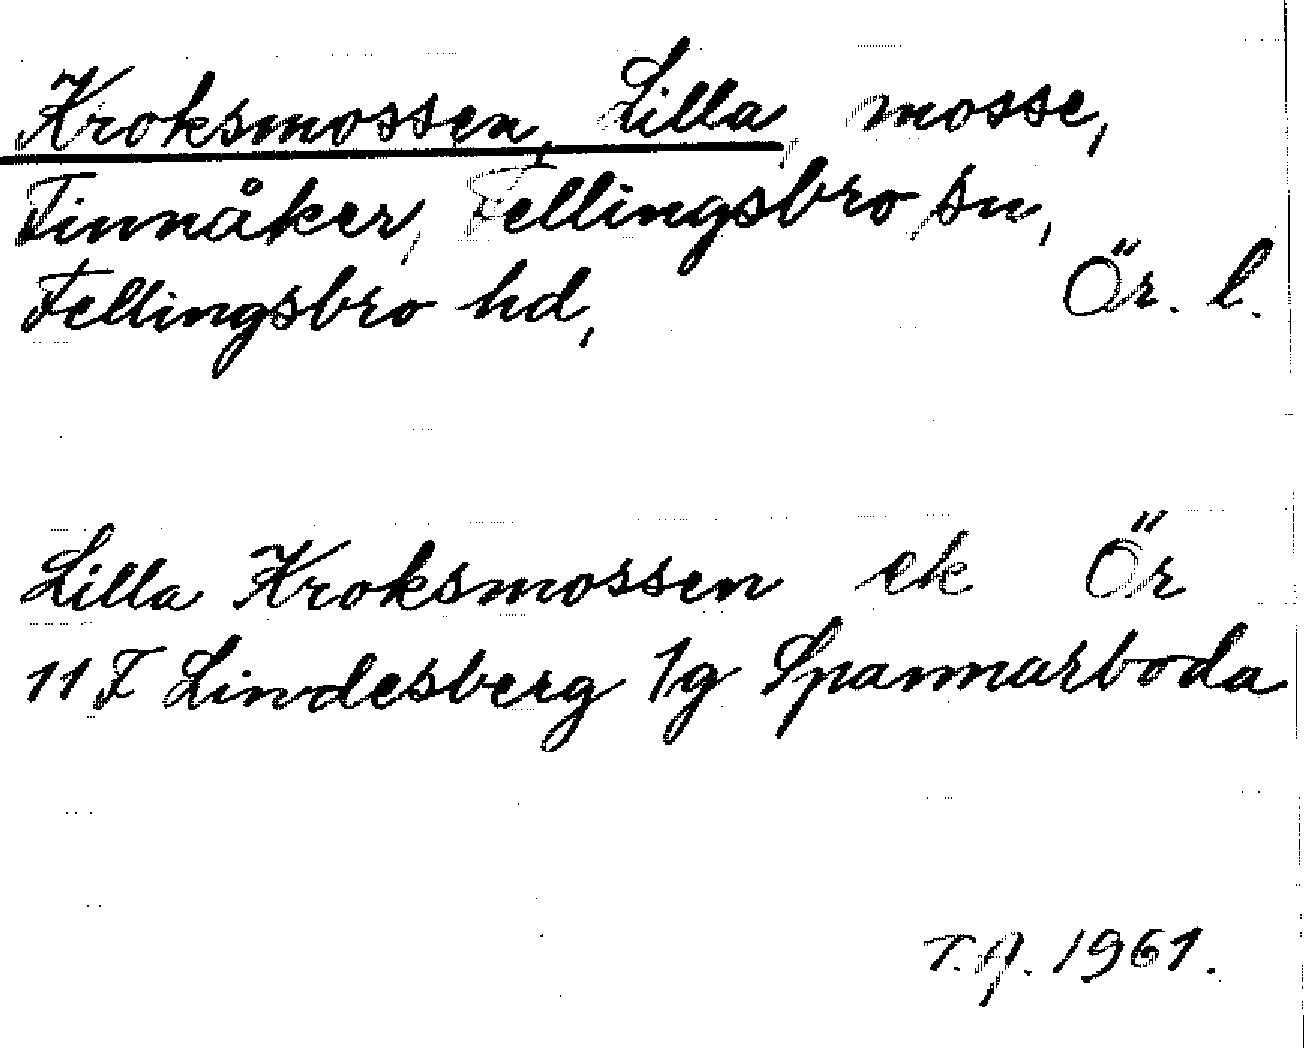 Kroksmossen, Lilla, mosse,
Finnåker, Fellingsbro sn,
Fellingsbro hd, Ör. l.
Lilla Kroksmossen ek Ör
11 F Lindesberg 1g Spannarboda
T.J. 1961.